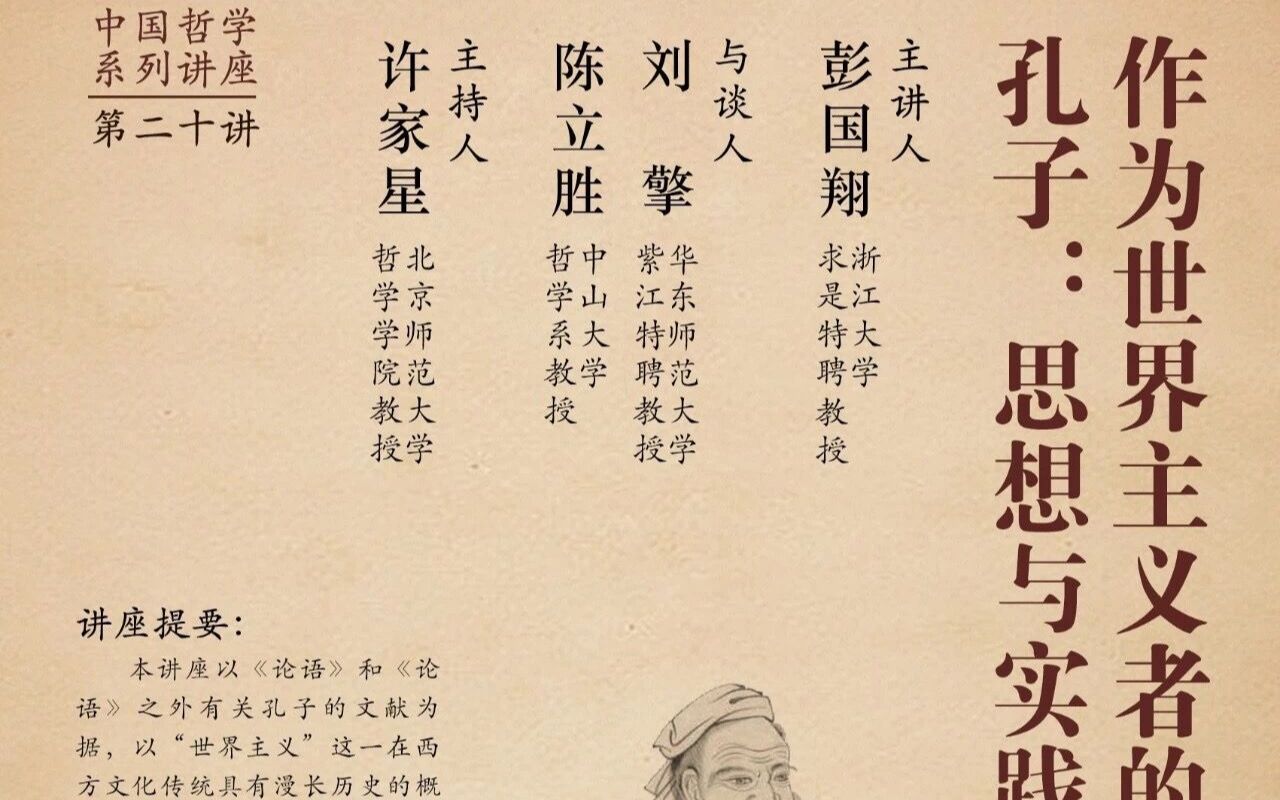 作为世界主义者的
孔子：思想与实践
主讲人
彭国翔
浙江大学
求是特聘教授
与谈人
刘擎
华东师范大学
紫江特聘教授
陈立胜
中山大学
哲学系教授
主持人
许家星
北京师范大学
哲学学院教授
中国哲学
系列讲座
第二十讲
讲座提要：
本讲座以《论语》和《论
语》之外有关孔子的文献为
据，以“世界主义”这一在西
方文化传统具有漫长历史的概